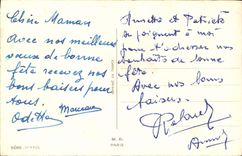 Chère Maman
Avec nos meilleurs
vœux de bonne
fête recevez nos
bons baisers pour
tous.
Odette
Annette et
se joignent à moi
pour t'adresser nos
souhaits de bonne
fête.
Avec nos bons
baisers.
M. D.
PARIS